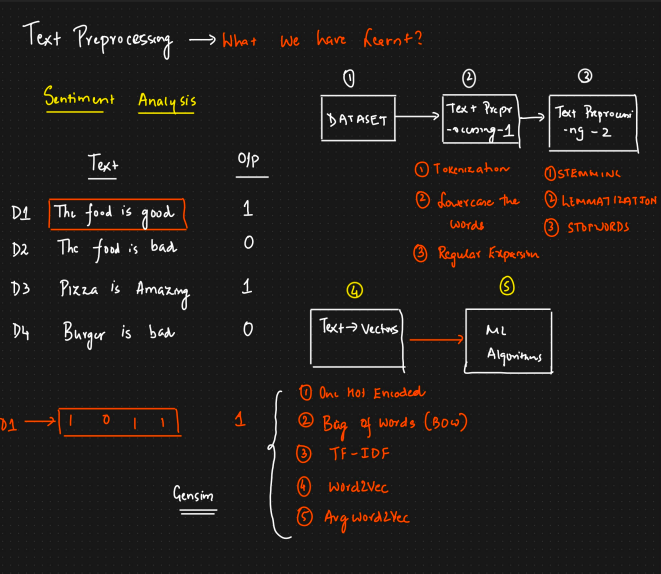 Text Preprocessing → What we have Learnt?
Sentiment Analysis
Text O/P
D1 The food is good 1
D2 The food is bad 0
D3 Pizza is Amazing 1
D4 Burger is bad 0
D1 → 1 0 1 1 1
Gensim
① ② ③
DATASET
Text Prepr
-ocessing-1
Text Preprocessi
-ng-2
① Tokenization
② Lowercase the
words
③ Regular Expression
① STEMMING
② LEMMATIZATION
③ STOPWORDS
④ ⑤
Text → Vectors
ML
Algorithms
① One Hot Encoded
② Bag of Words (BOW)
③ TF-IDF
④ Word2Vec
⑤ AvgWord2Vec